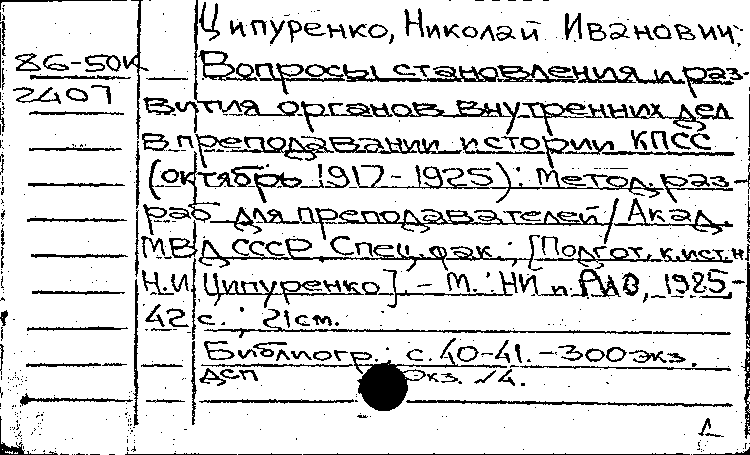 Ципуренко, Николай Иванович.
86-50к Вопросы становления и раз-
2407 вития органов внутренних дел
в преподавании истории КПСС
(октябрь 1917-1925): Метод. раз-
раб. для преподавателей/Акад.
МВД СССР. Спец. фак.; [Подгот. к.ист.н
Н.И. Ципуренко]. - М.: НИ и 1985.-
42 с.; 21см.
Библиогр.: с. 40-41. - 300 экз.
ДСП Экз. №4.